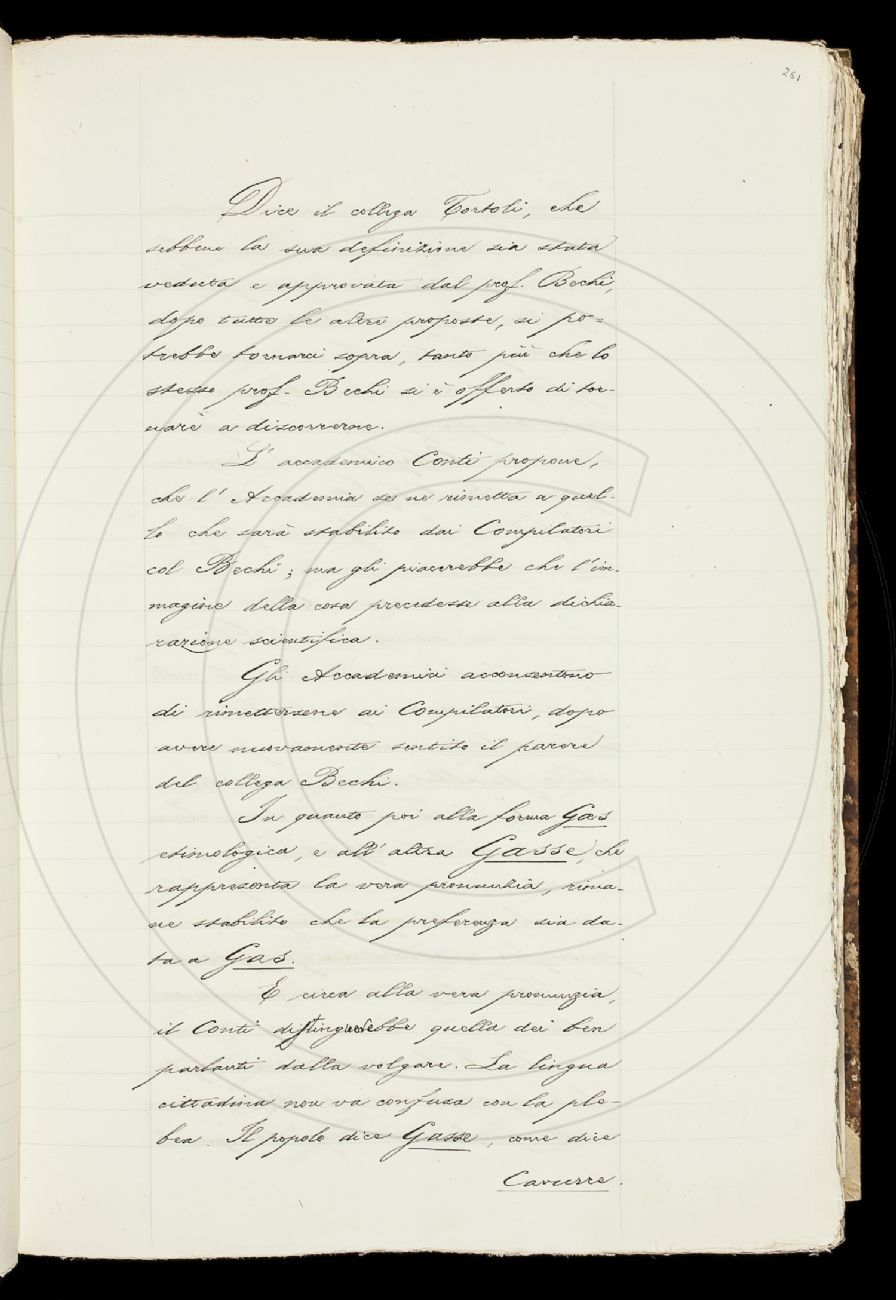 261
Dice il collega Tortoli, che
sebbene la sua definizione sia stata
veduta e approvata dal prof. Bechi,
dopo tutte le altre proposte, si po-
trebbe tornarci sopra, tanto più che lo
stesso prof. Bechi si è offerto di tor-
nare a discorrerne.
L' accademico Conti propone,
che l' Accademia se ne rimetta a quel-
lo che sarà stabilito dai Compilatori
col Bechi; ma gli piacerebbe che l'im-
magine della cosa precedesse alla dichia-
razione scientifica.
Gli Accademici acconsentono
di rimettersene ai Compilatori, dopo
avere nuovamente sentito il parere
del collega Bechi.
In quanto poi alla forma Gas
etimologica, e all' altra Gasse, che
rappresenta la vera pronunzia, rima-
ne stabilito che la preferenza sia da-
ta a Gas.
E circa alla vera pronunzia,
il Conti distinguerebbe quella dei ben
parlanti dalla volgare. La lingua
cittadina non va confusa con la ple-
bea. Il popolo dice Gasse, come dice
Cavurre.